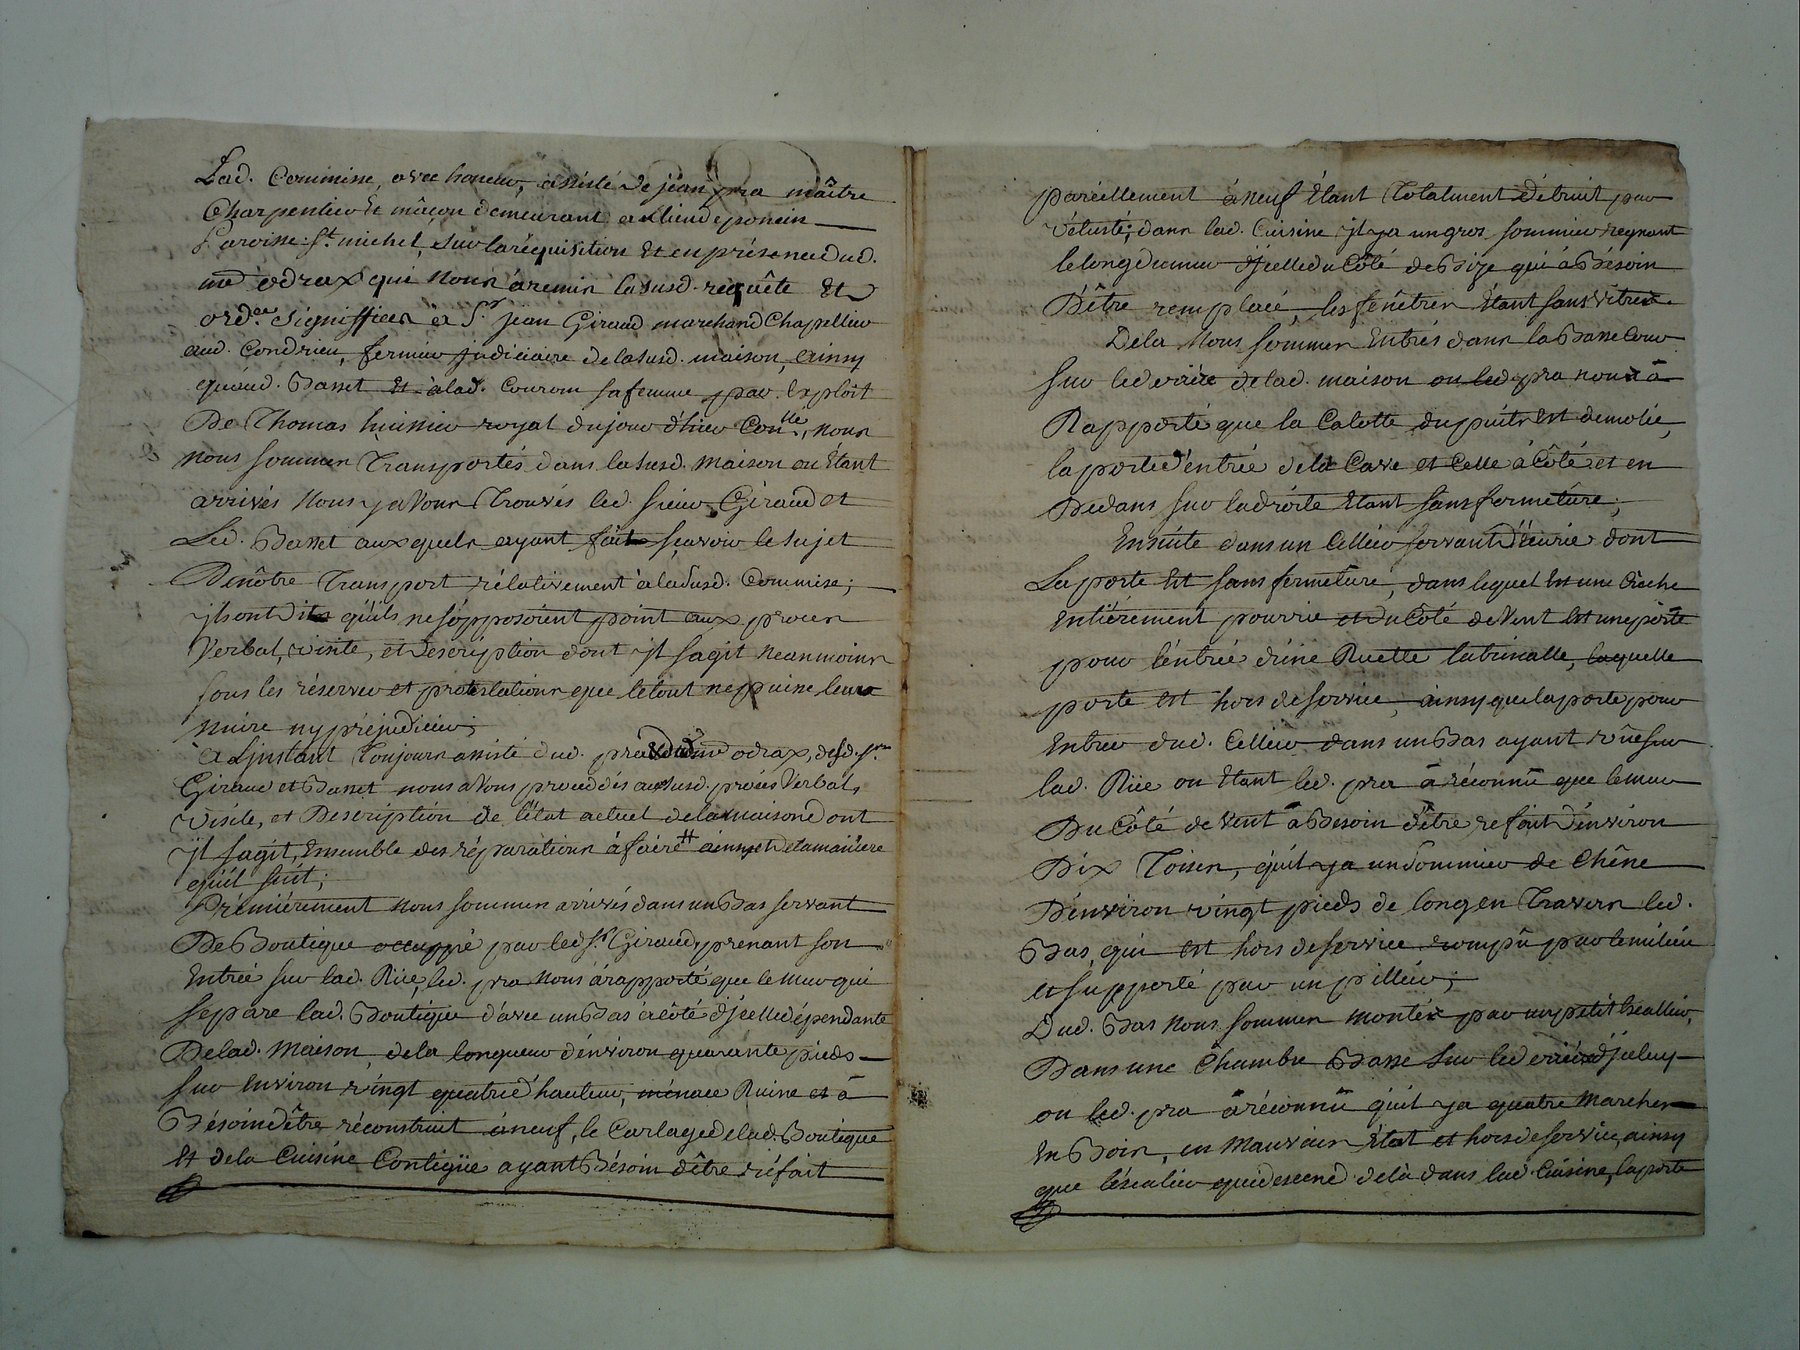 Lad. Commisse, avec honneur, assisté de jean pra maître
Charpentier et mâçon demeurant au lieu de poncin
Paroisse St. michel, sur la réquisition et en présence dud.
me odrax qui nous a remis la susd. requête et
ordce. Signiffiées a Sr. jean Giraud marchand Chapellier
aud. Condrieu, fermier judiciaire de la susd. maison, ainsy
qu'aud. Basset et à lad. Courom sa femme par Exploit
De Thomas huissier royal du jour d'hier Conlle., nous
nous sommes Transportés dans la susd. maison ou Etant
arrivés nous y avons Trouvés led. sieur Giraud et
Led. Basset auxquels ayant fait sçavoir le sujet
De nôtre Transport rélativement à la susd. Commise;
jls ont dits qu'ils ne s'opposoient point aux procès
Verbal, visite, et description dont jl s'agit neanmoins
sous les réserves et protestations que le tout ne puisse leurs
nuire ny préjudicier;
A L'jnstant Toujours assisté dud. pra dud. me odrax, desd. Srs
Giraud et Basset nous avons proceddés au susd. procès Verbal,
visite, et Description de l'état actuel de la maison dont
jl s'agit, Ensemble des réparations à faire # ainsy et de la manière
qu'il suit;
Prémiérement nous sommes arrivés dans un Bas servant
De Boutique occuppé par led. Sr. Giraud, prenant son
Entrée sur lad. Rüe, led. pra nous a rapporté que le mur qui
separe lad. Boutique d'avec un Bas à côté d'jcelle dépendante
De lad. Maison, de la longueur d'environ quarante pieds
sur Environ vingt quatre d'hauteur, ménace Ruine et à
Bésoin d'être réconstruit à neuf, le Carlage de lad. Boutique
Et de la Cuisine Contigüe ayant Bésoin d'être réfait
pareillement à neuf Etant Totalment détruit par
vétusté; dans lad. Cuisine jl y a un gros sommier regnant
le long du mur d'jcelle du Côté de Bize qui a Bésoin
D'être remplacé, les fenêtres Etant sans vitres.
De la nous sommes Entrés dans la Basse Cour
sur le derrière de lad. maison ou led. pra nous a
Rapporté que la Calotte du puits est demolie,
la porte d'entrée de la Cave et Celle à Côté et en
Dedans sur la droite Etant sans fermeture;
Ensuite dans un Cellier servant D'Ecurie dont
La porte Est sans fermeture, dans lequel Est une Crêche
Entiérement pourrie et du Côté de Vent Est une porte
pour l'entrée d'une Ruette latrinalle, laquelle
porte est hors de service, ainsy que la porte pour
Entrer dud. Cellier dans un Bas ayant vûe sur
lad. Rüe ou Etant led. pra a réconnû que le mur
Du Côté de Vent a Besoin d'être refait d'environ
Dix Toises, qu'il y a un Sommier de Chêne
D'environ vingt pieds de long en Travers led.
Bas, qui est hors de service rompû par le milieu
et supporté par un pillier;
Dud. Bas nous sommes montés par un petit Escallier,
Dans une Chambre Basse sur le derriére d'jceluy
ou led. pra a réconnû qu'il y a quatre marches
En Bois, en mauvais Etat et hors de service, ainsy
que l'éscalier qui descend de là dans lad. Cuisine, la porte